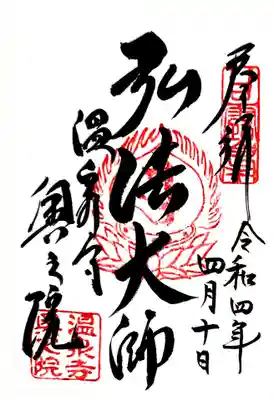 奉拝
令和四年
四月十日
弘法大師
温泉寺
奥之院
温泉寺
奥之院